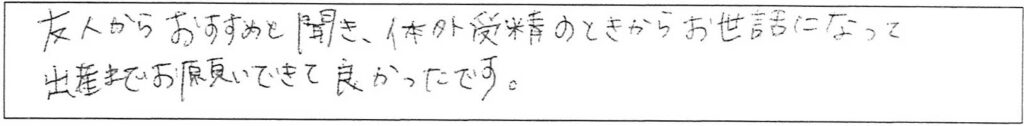 友人からおすすめと聞き、体外受精のときからお世話になって
出産までお願いできて良かったです。